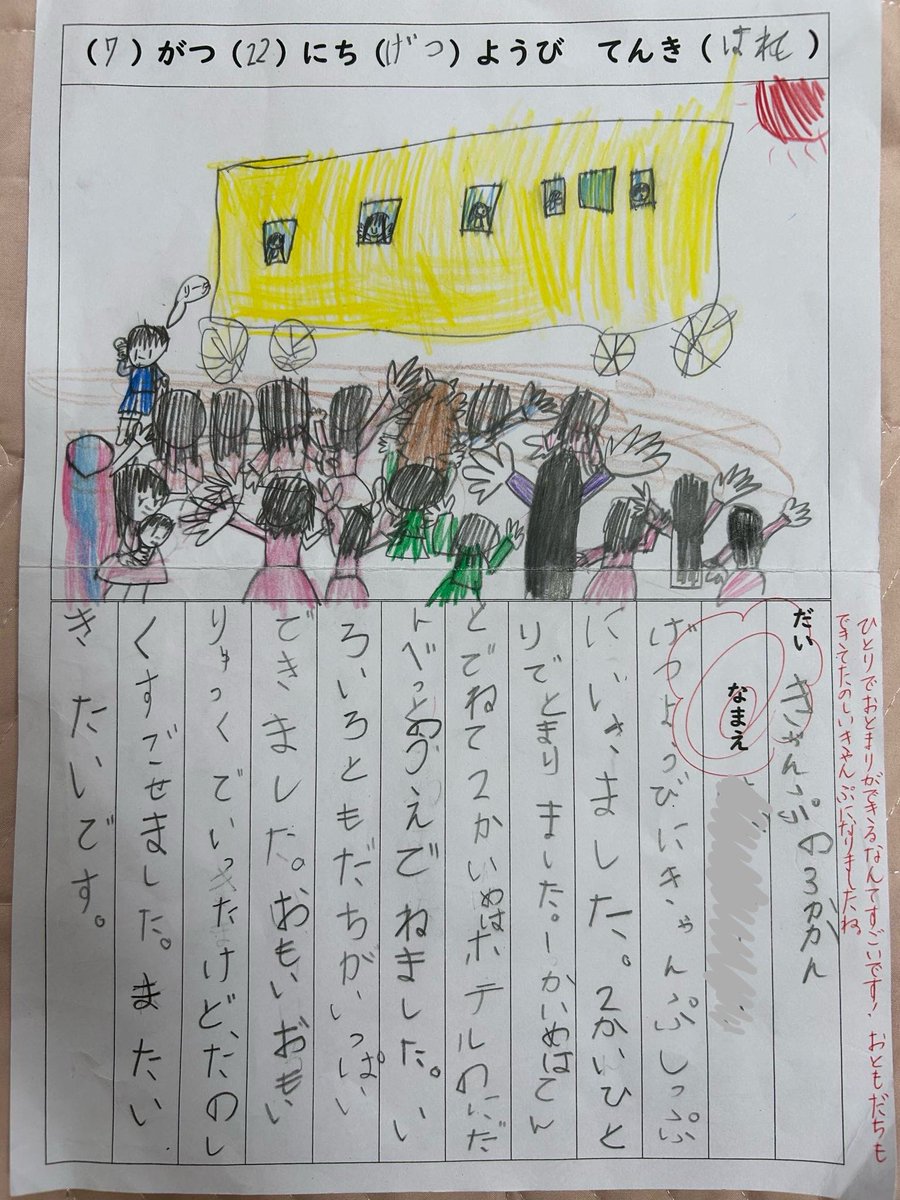 （7）がつ（22）にち（げつ）ようび　てんき（はれ）
ひとりでおとまりができるなんてすごいです！ おともだちも
できてたのしいきゃんぷになりましたね
だい きゃんぷの3かかん
なまえ
げつようびにきゃんぷしっぷ
にいきました。2かいひと
りでとまりました。1かいめはてん
とでねて2かいめはホテルのにだ
んべっとのうえでねました。い
ろいろともだちがいっぱい
できました。おもいおもい
りゅっくでいったけど、たのし
くすごせました。またい
きたいです。